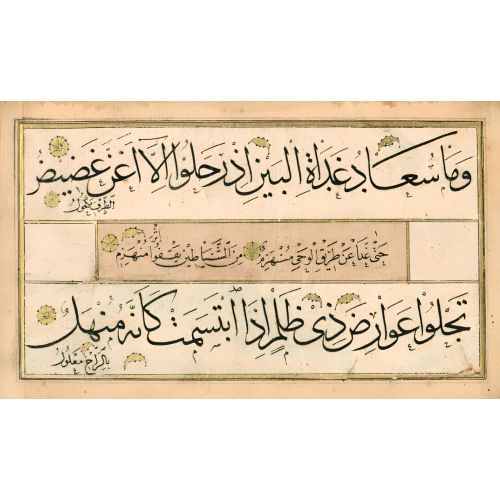 وما سعاد غداة البين اذ رحلوا الا اغن غضيض
الطرف مكحول
حتى غدا عن طريق الوحي منهزم من الشياطين يقفوا اثر منهزم
تجلوا عوارض ذي ظلم اذا ابتسمت كانه منهل
بالراح معلول